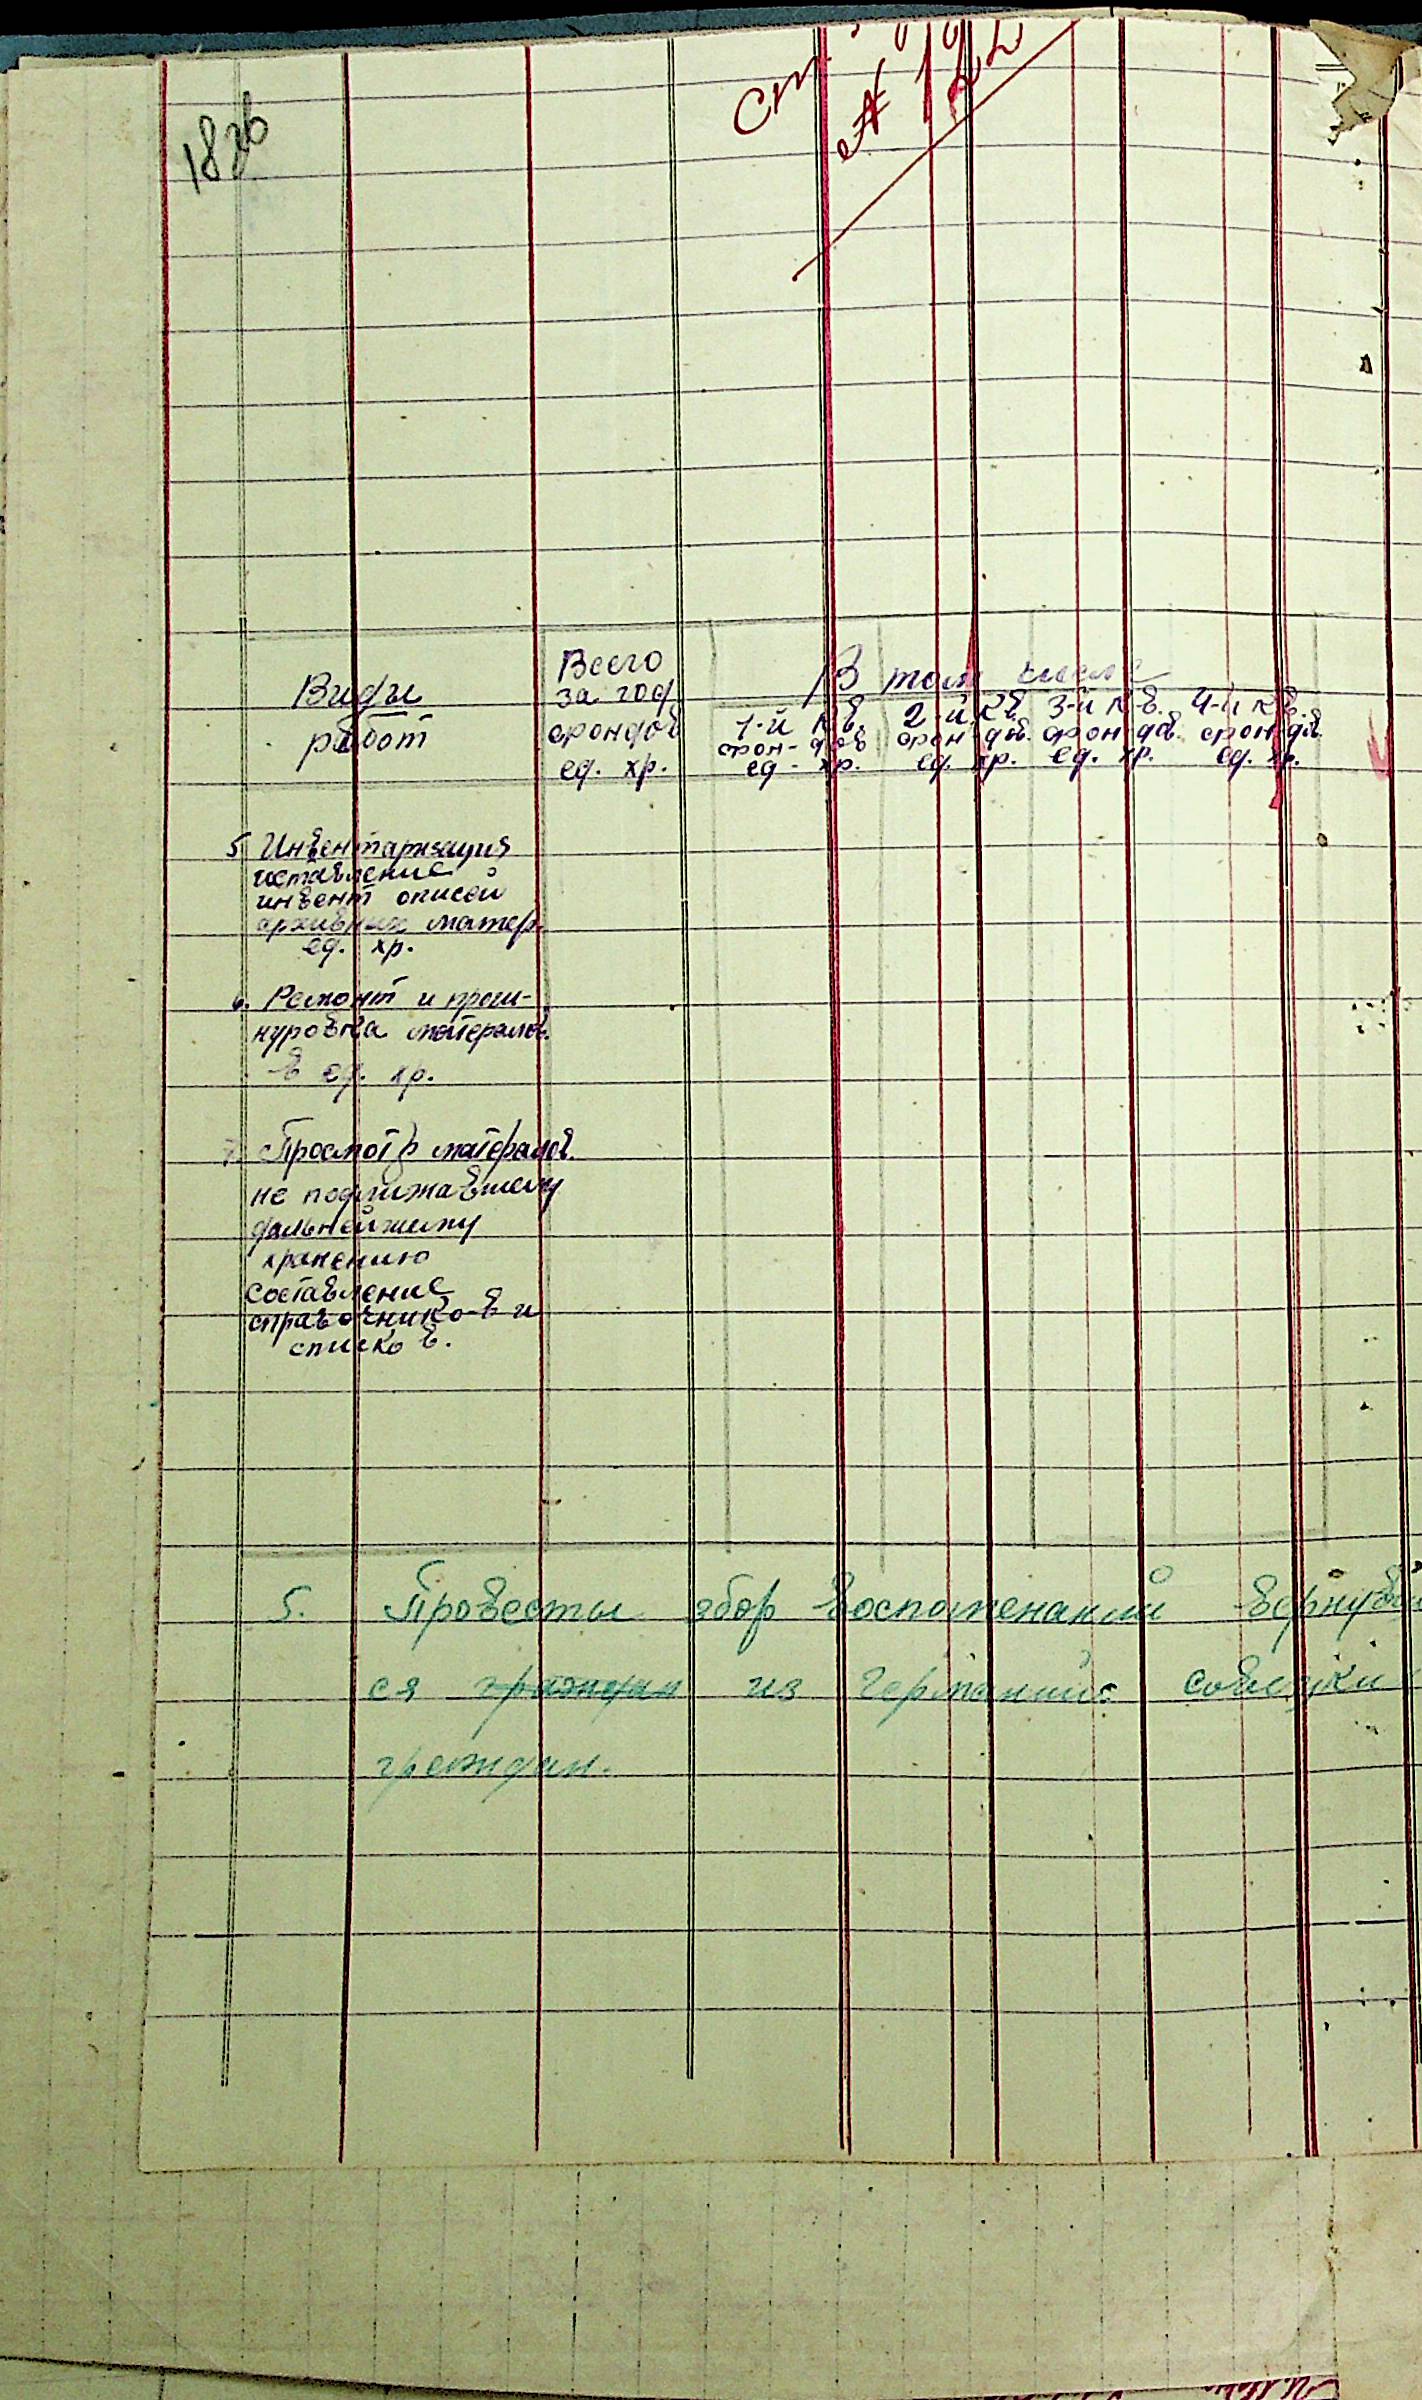 182б
ст.
№ 122
Виды
работ
Всего
за год
фондов
ед. хр.
В том числе
1-й кв.
фон-дов
ед. хр.
2-й кв.
фондов.
ед. хр.
3-й кв.
фондов.
ед. хр.
4-й кв.
фондов.
ед. хр.
5. Инвентаризация
инвент описей
архивных матер.
ед. хр.
6. Ремонт и прош-
нуровка материалов.
в ед. хр.
7. Просмотр материалов.
не подлижавшему
дальнейшему
хранению
составление
справочников и
списков.
5. Провесты сбор воспоменаний вернув
ся граждан из Германии: советски
граждан.